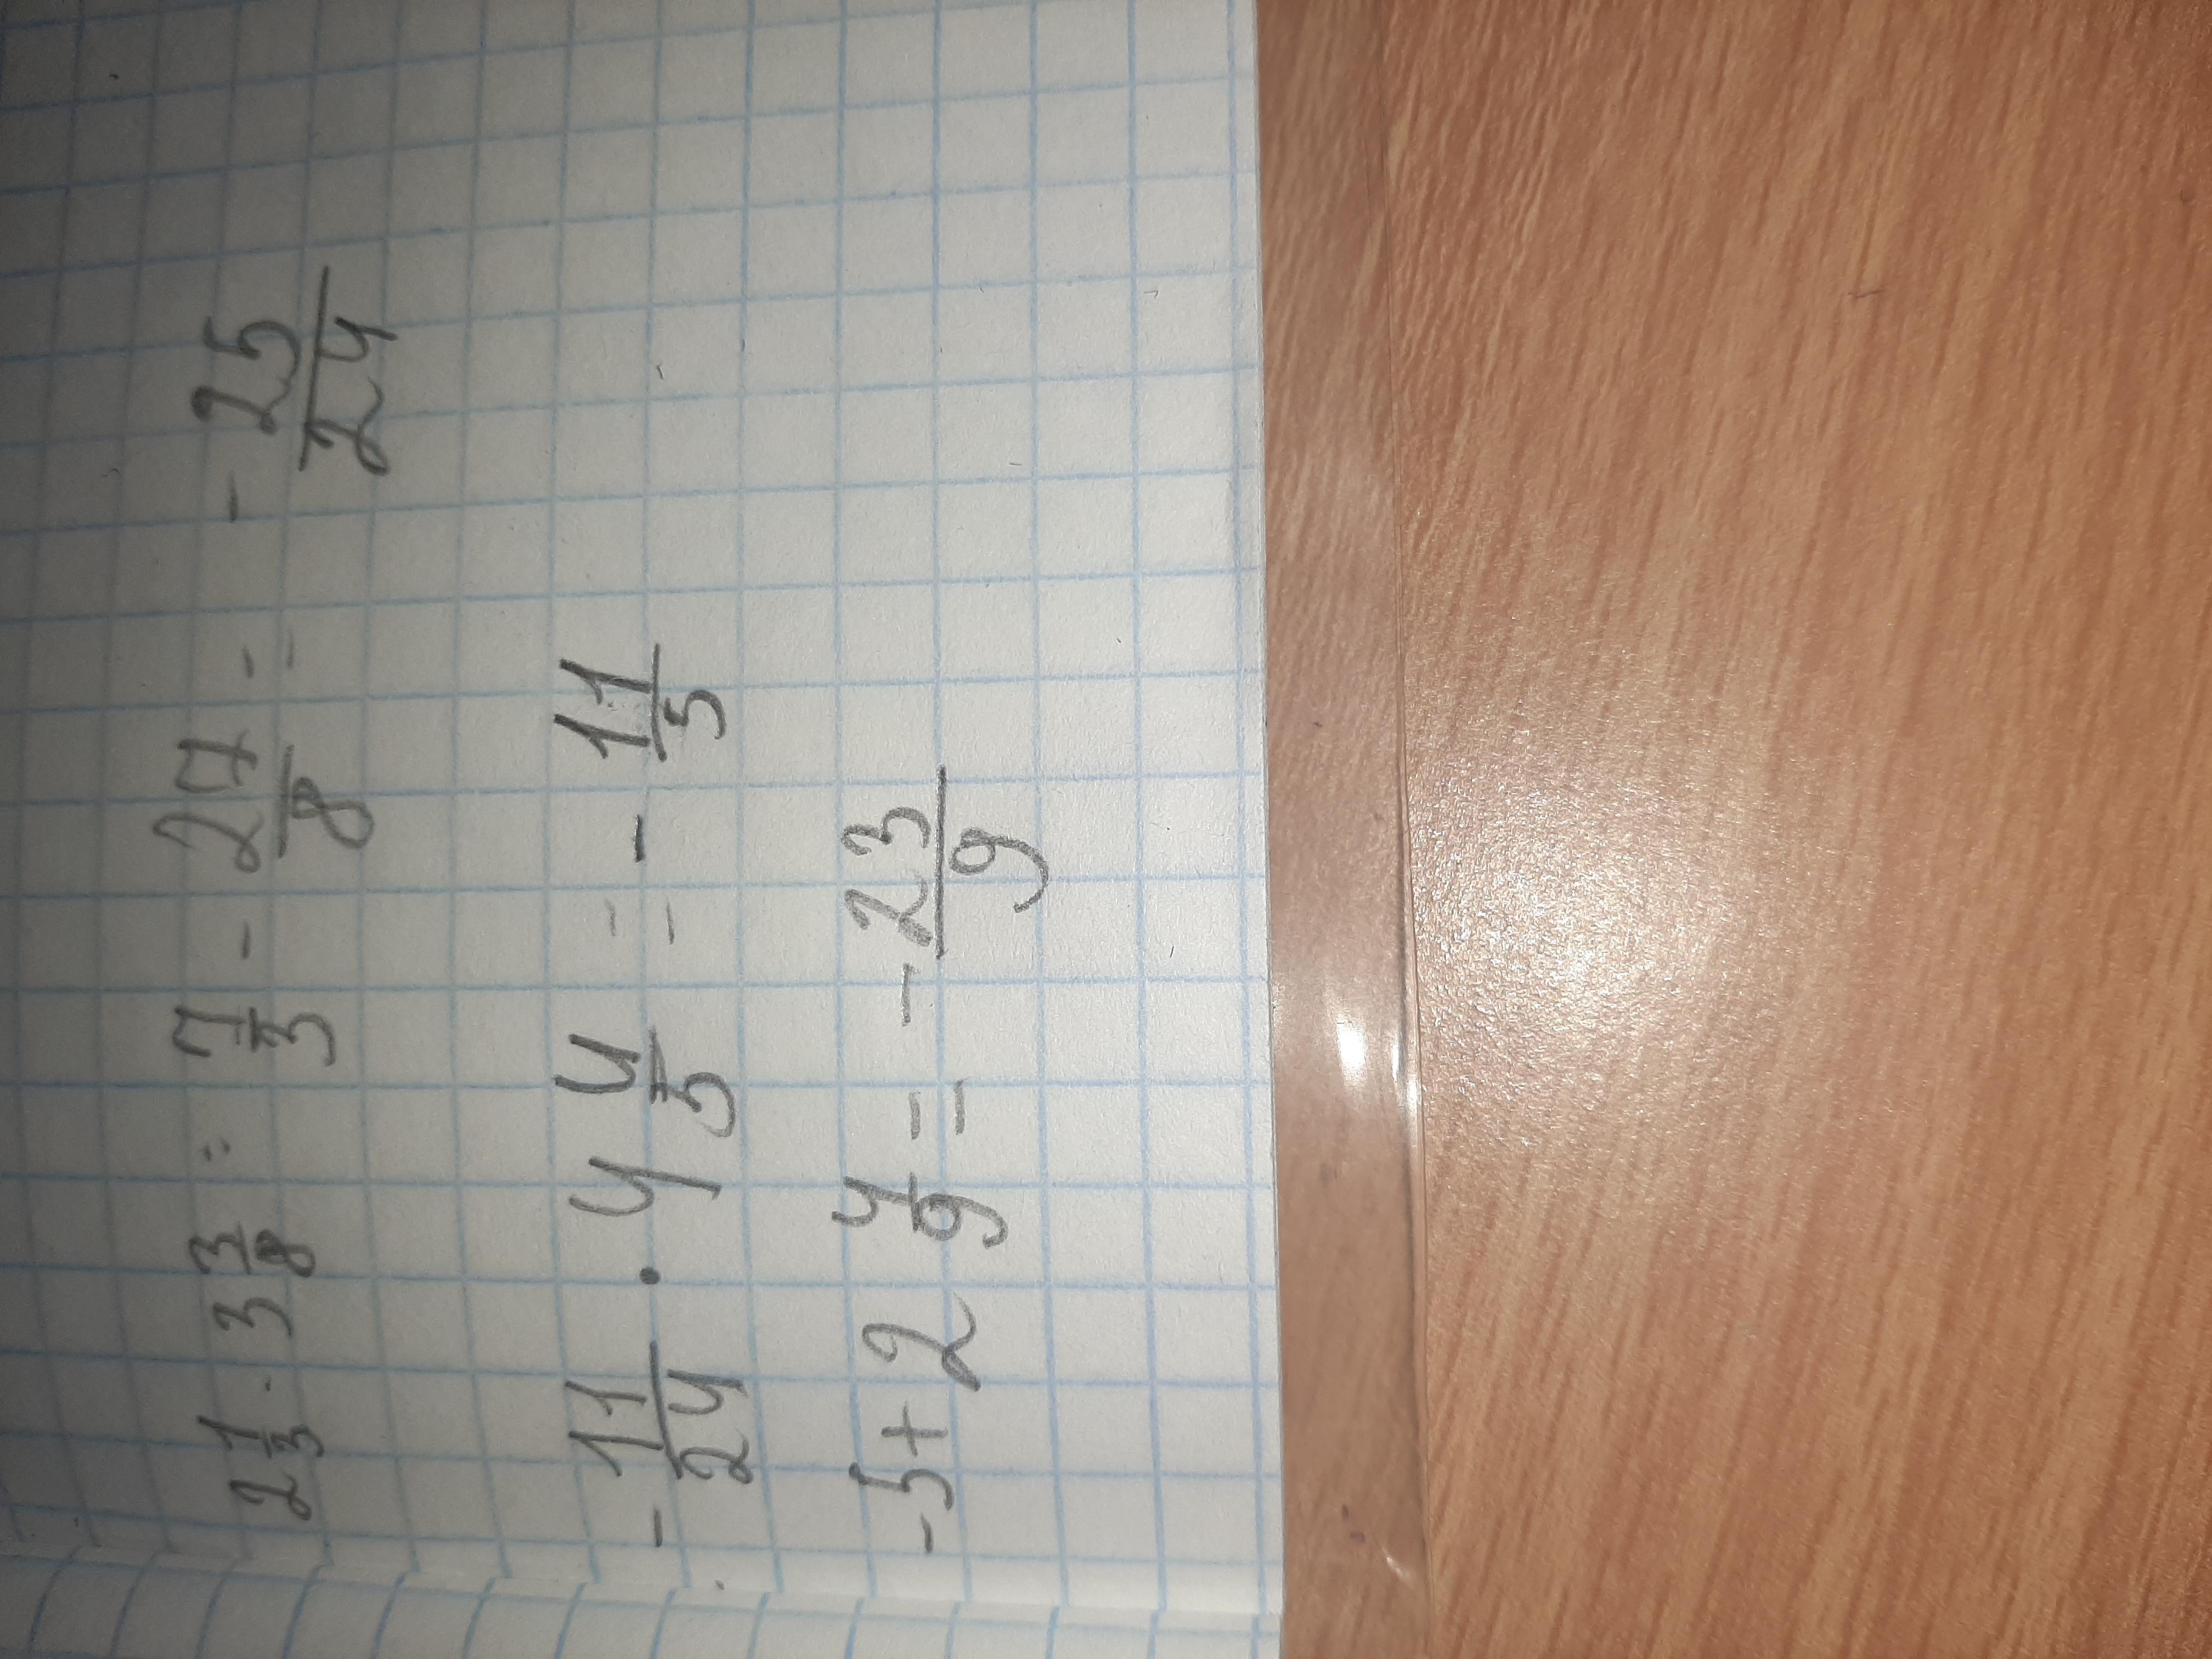 2 1/3 · 3 3/8 = 7/3 - 27/8 = - 25/24
- 11/24 · 4 4/5 = - 11/5
-5 + 2 4/9 = - 23/9